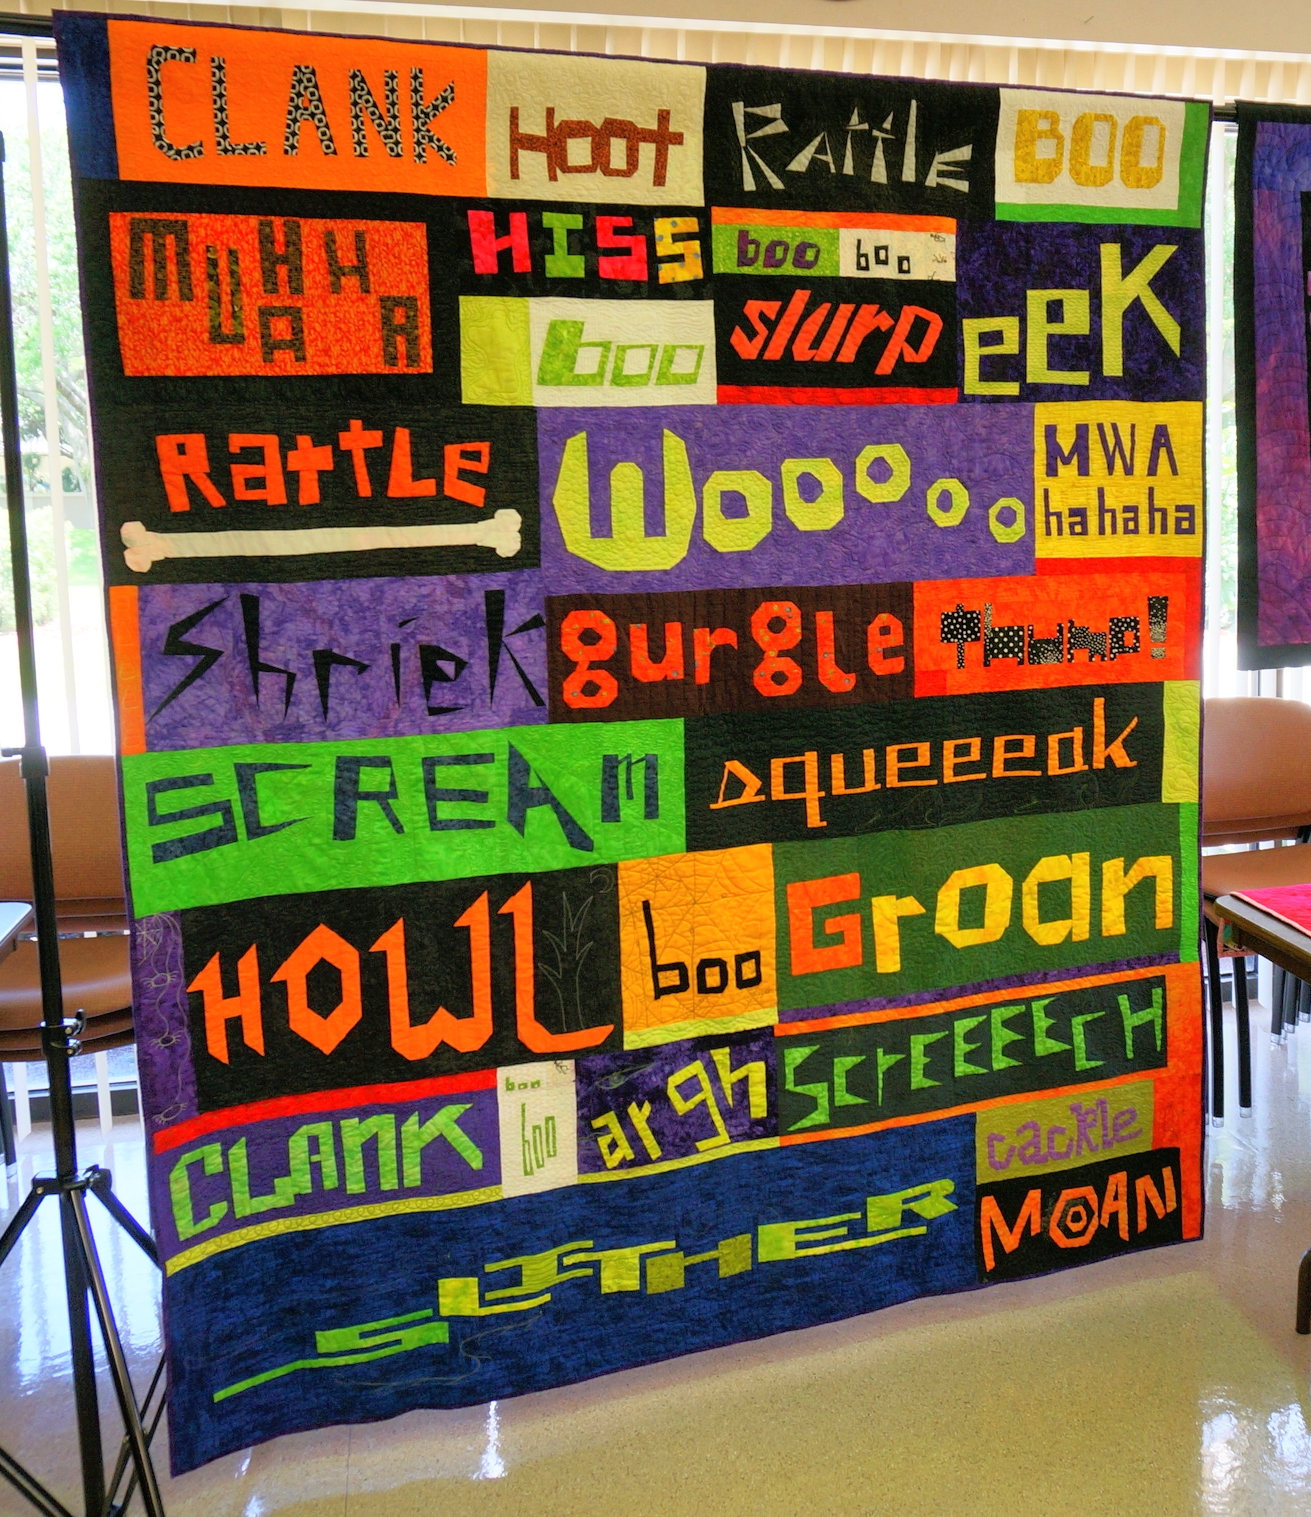 CLANK Hoot RATTLE BOO
MUHAHA HISS boo boo eeK
boo slurp
RattLe Woooo o MWA
hahaha
ShrieK gurgle thump!
SCREAm squeeeak
HOWL boo Groan
CLANK boo boo argh ScrEEEEcH cackle
SLITHER MOAN